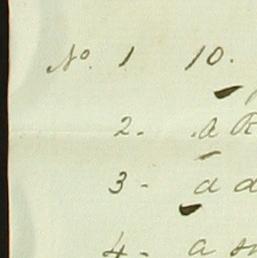 No. 1 10.
2. a
3 - a a
4 - a